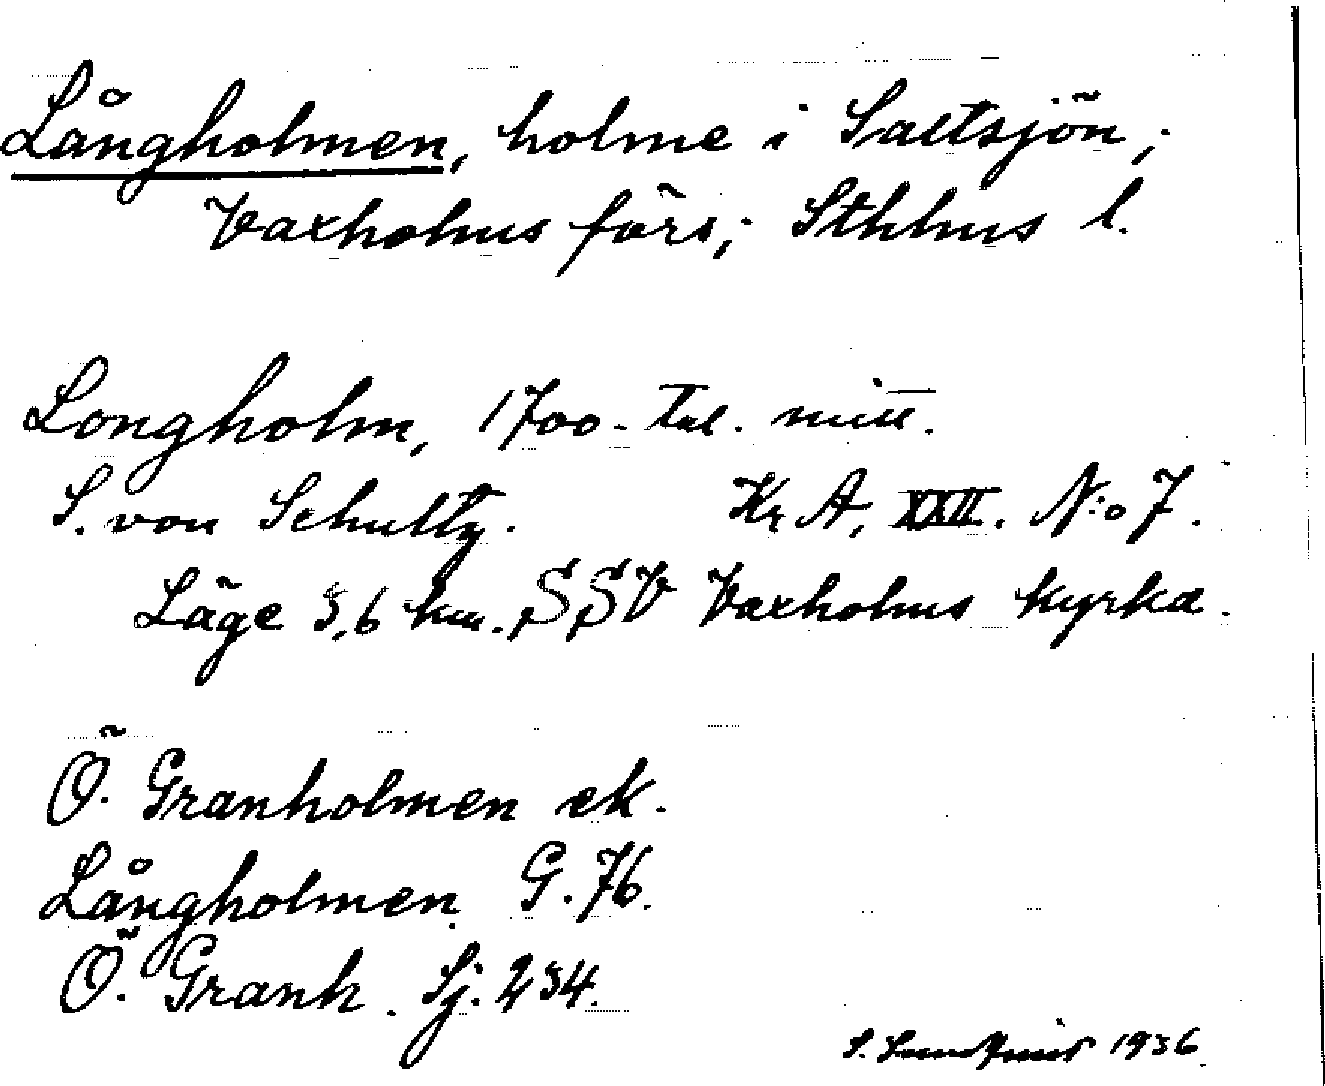 Långholmen, holme i Saltsjön;
Vaxholms förs; Sthlms l.
Longholm, 1700-tal. mitt.
S. von Schultz. Kr. A. XXII. N:o 7.
Läge 3,6 km. SSV Vaxholms kyrka.
Ö. Granholmen ek.
Långholmen G. 76.
Ö. Granh. Sj. 234.
S. 1936